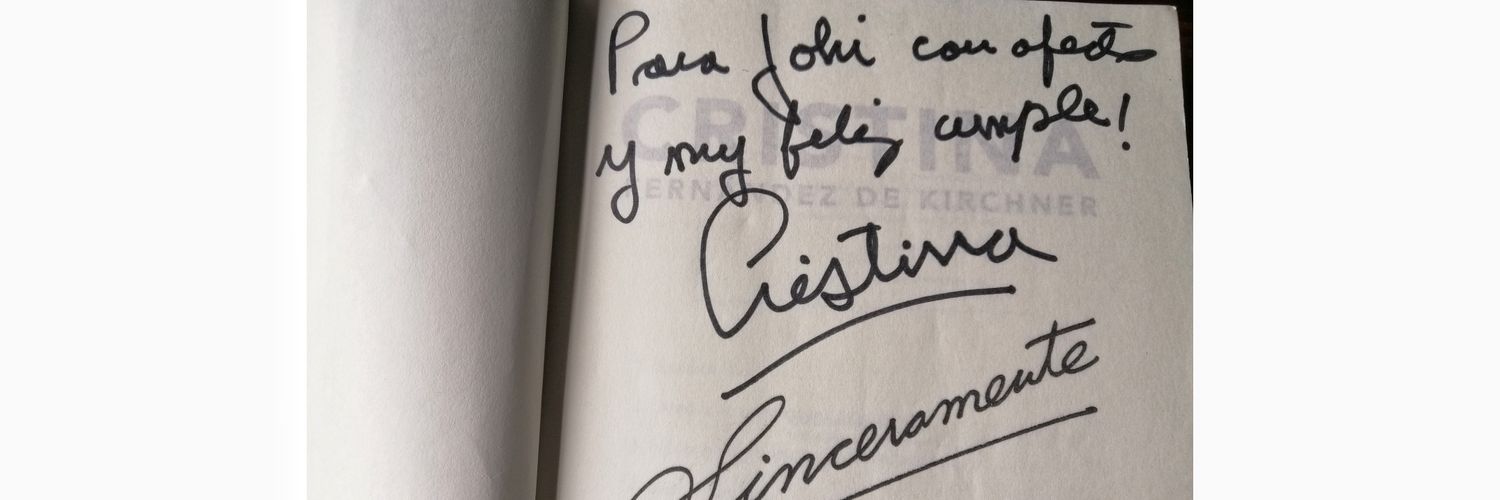 Para Johi con afecto
y muy feliz cumple!
CRISTINA
FERNÁNDEZ DE KIRCHNER
Cristina
Sinceramente